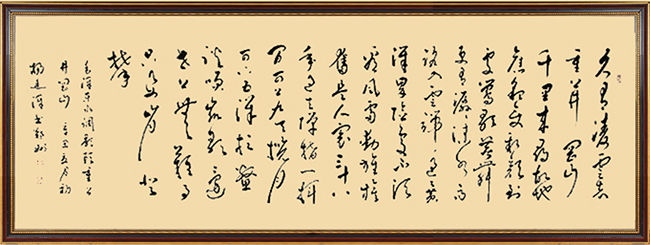 久有凌云志
重上井冈山
千里来寻故地
旧貌变新颜到
处莺歌燕舞
更有潺潺流水高
路入云端过了黄
洋界险处不须
看风雷动旌旗
奋是人寰三十八
年过去弹指一挥
间可上九天揽月
可下五洋捉鳖
谈笑凯歌还
世上无难事
只要肯登
攀
毛泽东水调歌头重上
井冈山 辛丑五月初